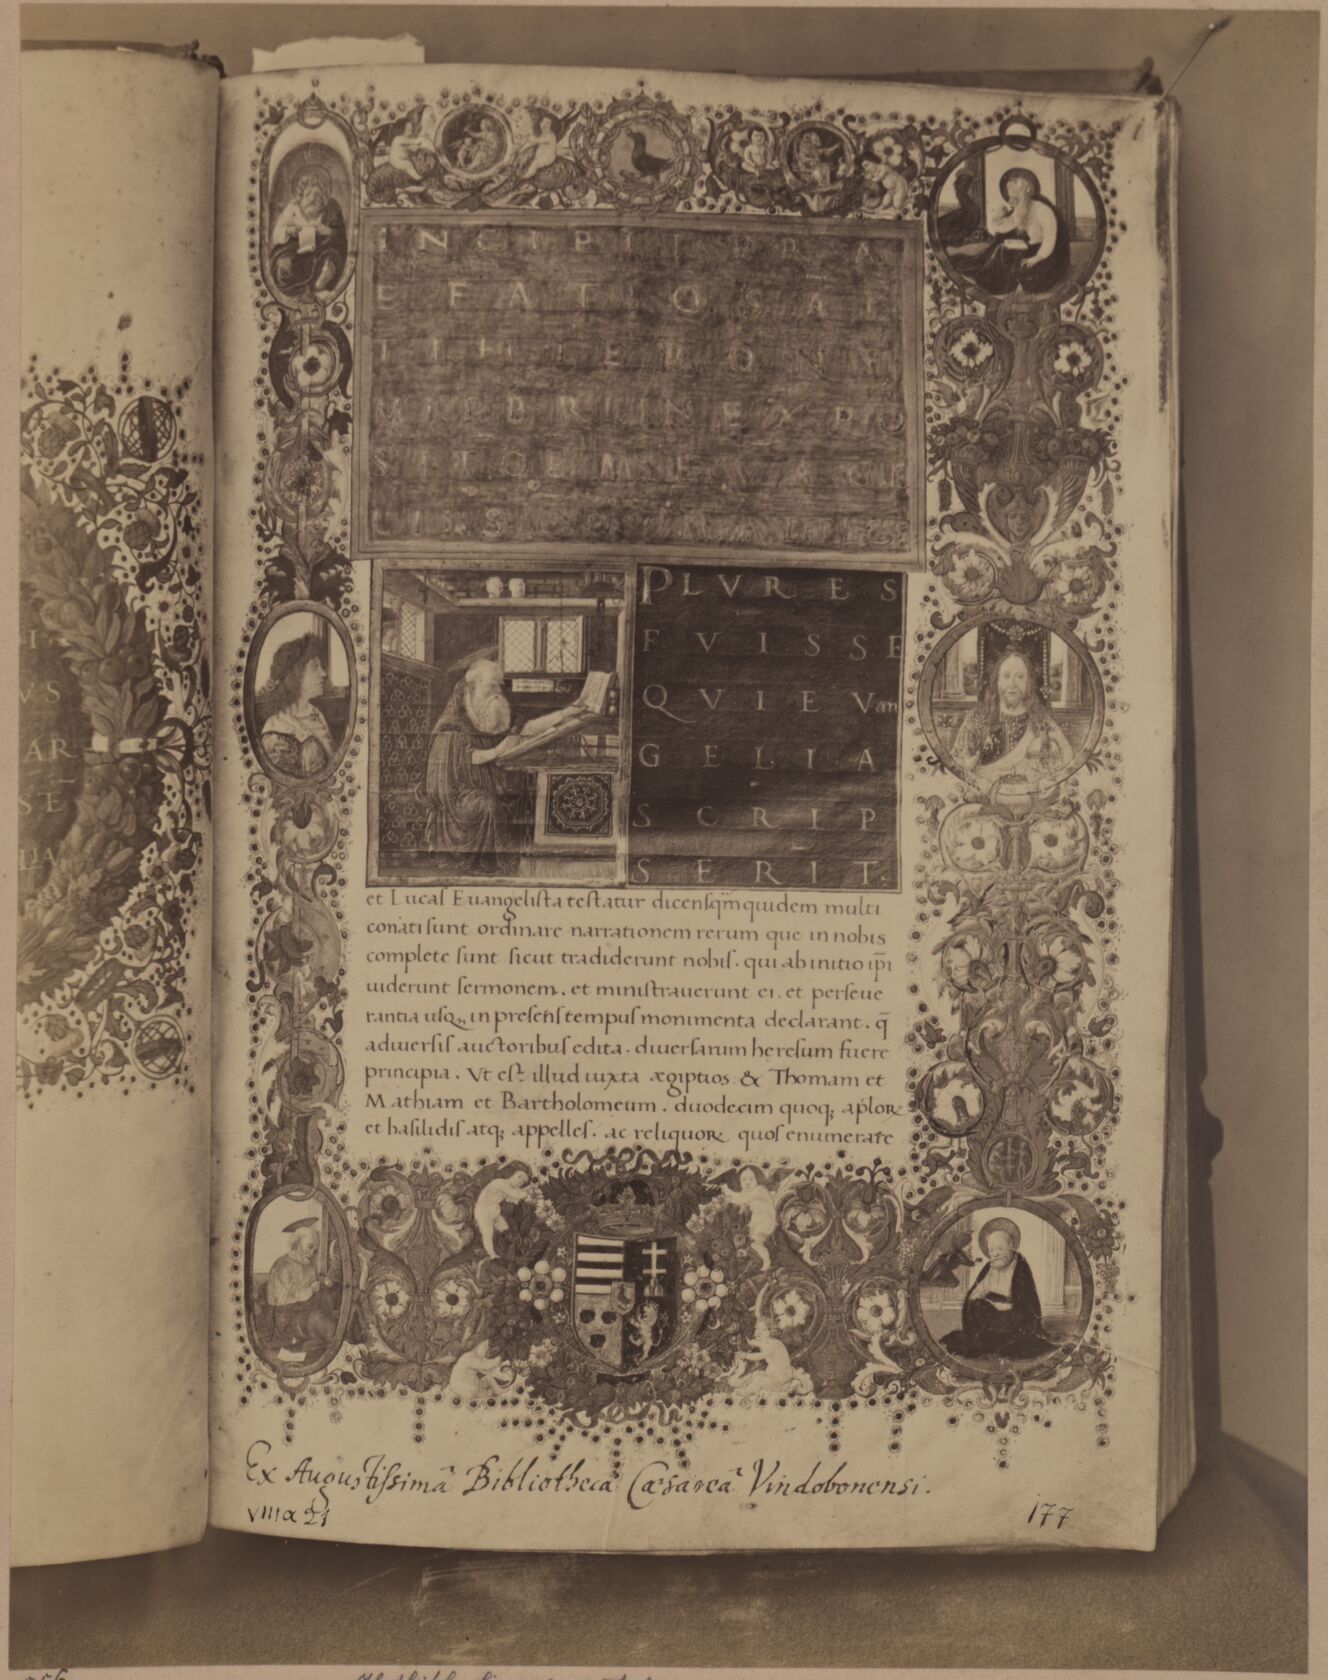 VS
AR
SE
INCIPIT PRA
EFATIO SAC
TI HIERONY
PLVRES
FVISSE
QVI EVan
GELIA
SCRIP
SERIT.
et Lucaſ Euangeliſta teſtatur dicenſ qm̄ quidem multi
conati ſunt ordinare narrationem rerum que in nobis
complete ſunt ſicut tradiderunt nobiſ. qui ab initio ip̄i
uiderunt ſermonem. et miniſtrauerunt ei. et perſeue
rantia uſq; in preſenſ tempuſ monimenta declarant. q̄
a diuerſiſ auctoribuſ edita. diuerſarum hereſum fuere
principia. Vt eſt illud iuxta ægiptios & Thomam et
Mathiam et Bartholomeum. duodecim quoq; aploꝝ
et baſilidiſ atq; appelleſ. ac reliquoꝝ quoſ enumerare
Ex Augustissimâ Bibliothecâ Cæsareâ Vindobonensi.
VIIII α 21
177